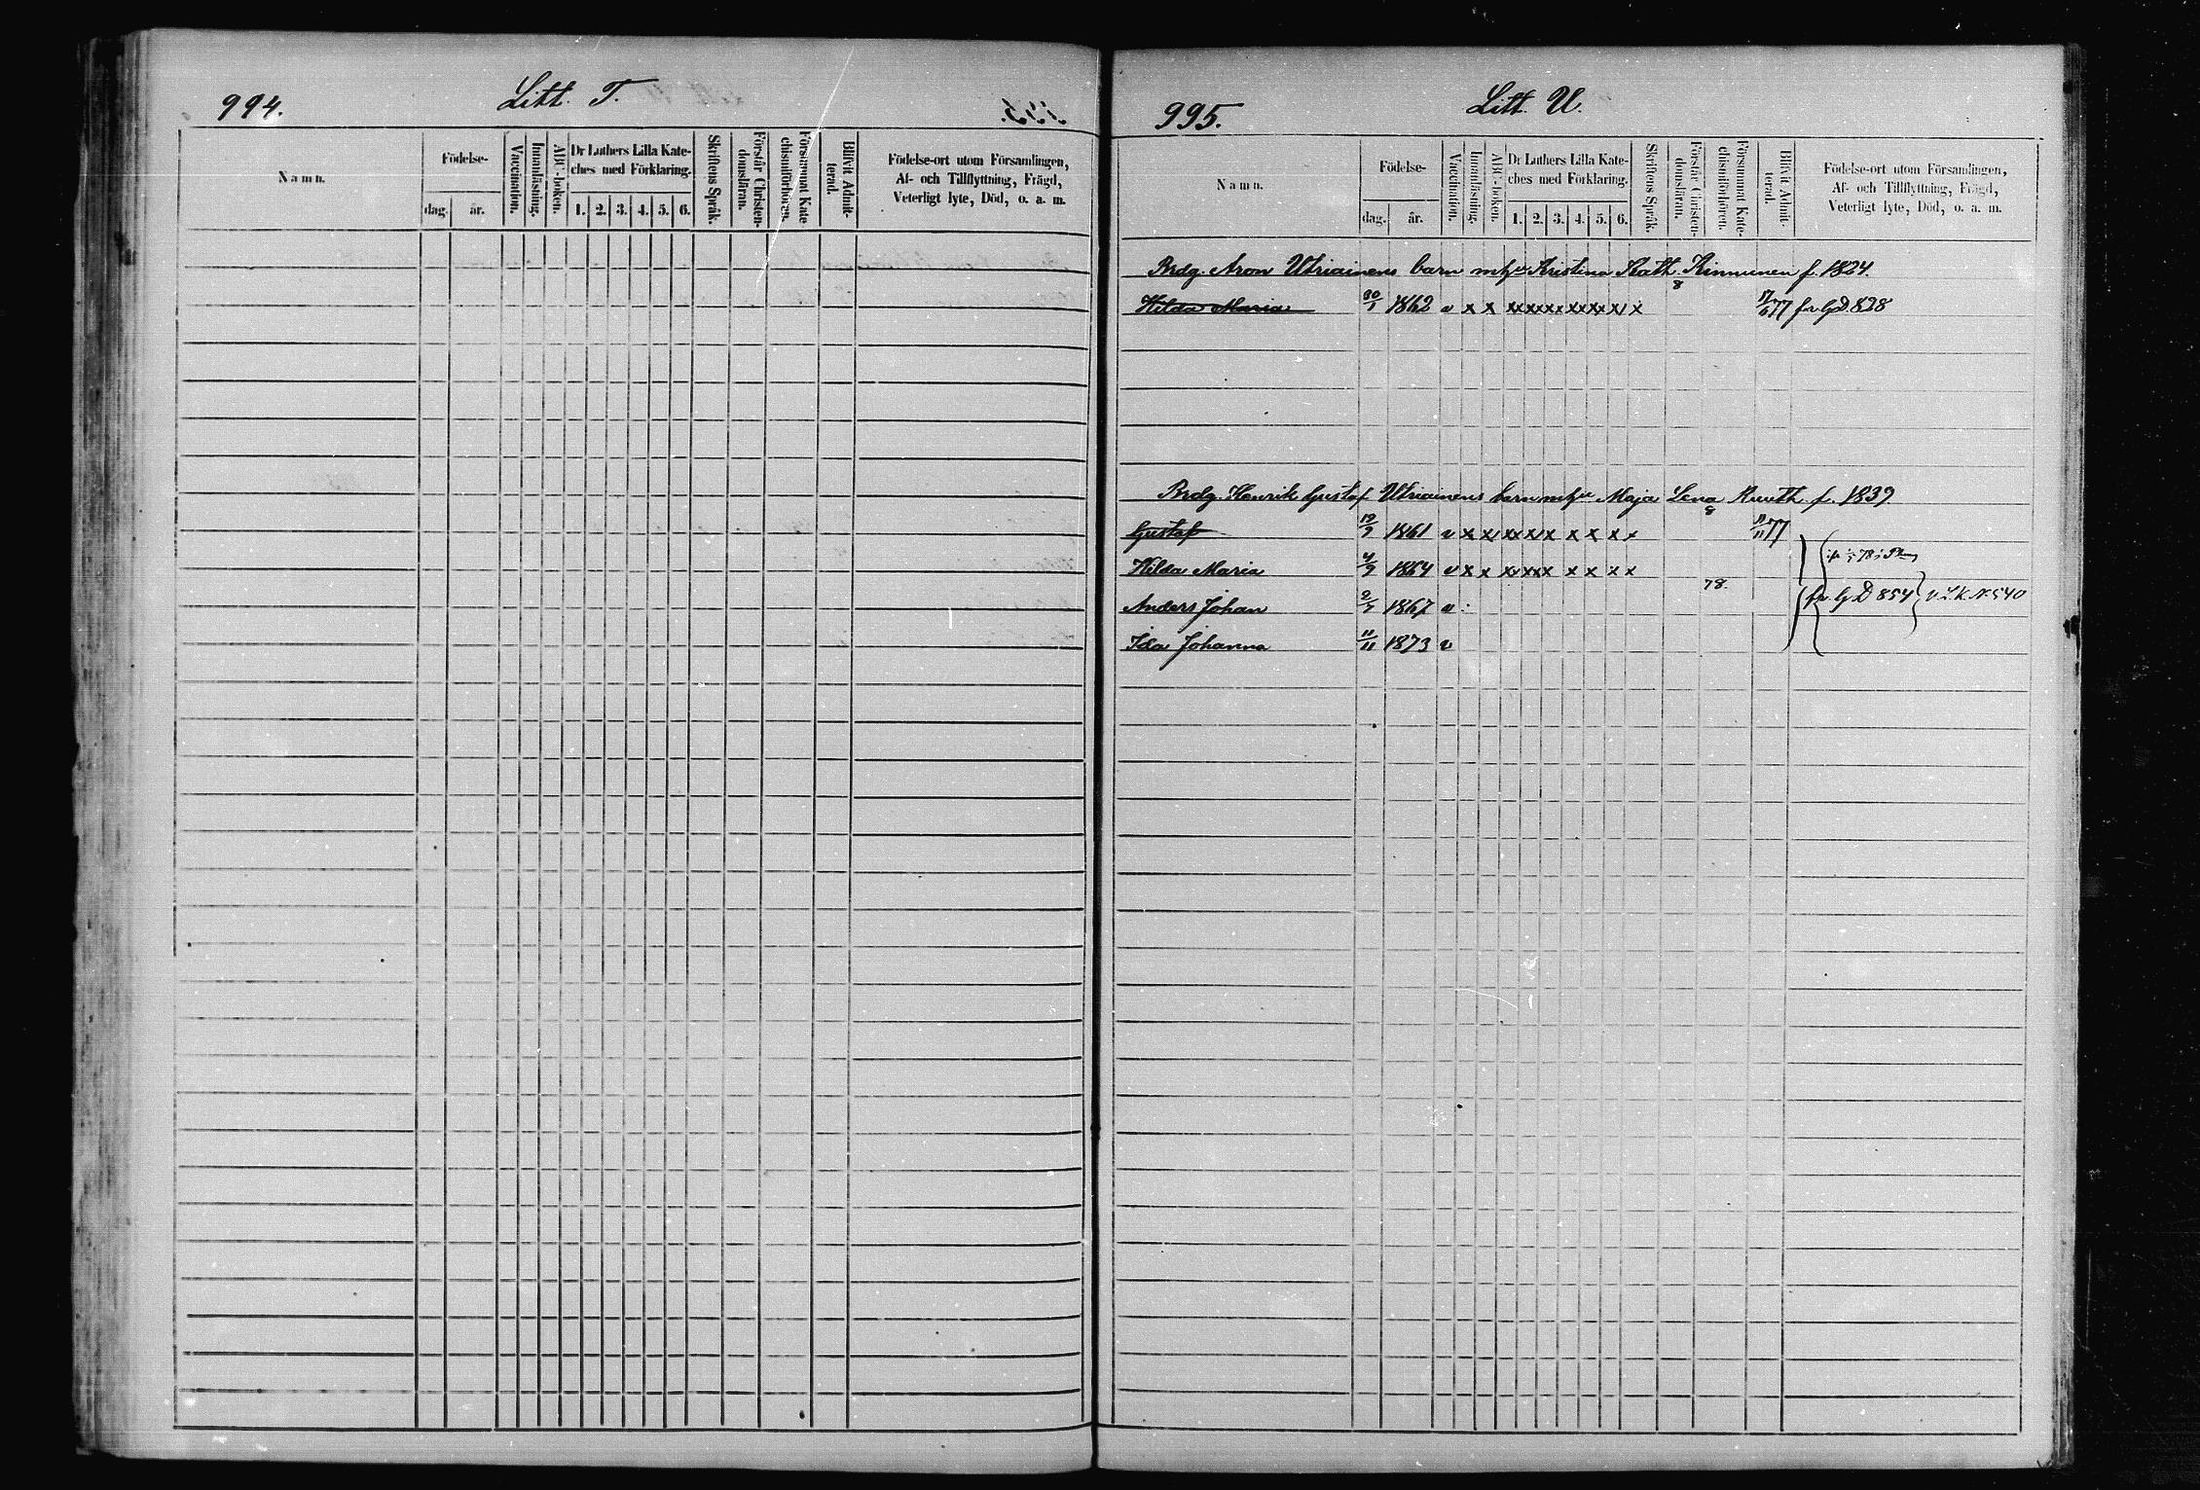 994.
Litt. T.
Namn.
Födelse-
dag.
år.
Vaccination.
Innanläsning.
ABC-boken.
Dr Luthers Lilla Kate-
ches med Förklaring.
1. 2. 3. 4. 5. 6.
Skriftens Språk.
Förstår Christen-
domsläran.
Försummat Kate
chismiförhören.
Blifvit Admit-
terad.
Födelse-ort utom Församlingen,
Af- och Tillflyttning, Frägd,
Veterligt lyte, Död, o. a. m.
995.
Litt. U.
Namn.
Födelse-
dag.
år.
Vaccination.
Innanläsning.
ABC-boken.
Dr Luthers Lilla Kate-
ches med Förklaring.
1. 2. 3. 4. 5. 6.
Skriftens Språk.
Förstår Christen-
domsläran.
Försummat Kate-
chismiförhören.
Blifvit Admit-
terad.
Födelse-ort utom Församlingen,
Af- och Tillflyttning, Frägd,
Veterligt lyte, Död, o. a. m.
Aron Utriainens barn Kristina Kath. Kinnunen f. 1824.
Hilda Maria 30/1 1862 v x x xxxxxxxxxx x 77 fr. G D. 828
Henrik Gustaf Utriainens barn Maja Lena Ruuth f. 1839.
Gustaf 19/9 1861 v x x xx x x x x x x 77
Hilda Maria 4/9 1864 v x x xxxx x x x x
Anders Johan 1867 v 78. fr. G D 854 N 540
Ida Johanna 11/11 1873 v